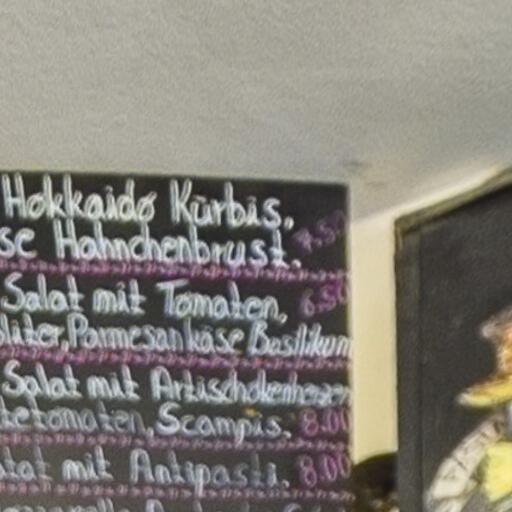 Hokkaido Kürbis,
se Hähnchenbrust. 7.50
Salat mit Tomaten, 6.50
Parmesankäse Basilikum
Salat mit Artischokenherzen
tetomaten, Scampis. 8.00
lat mit Antipasti. 8.00